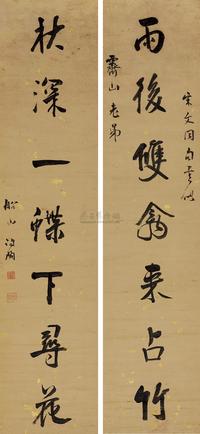 宋文同句書似
雨後雙禽来占竹
霽山老弟
秋深一蝶下尋花
船山問陶